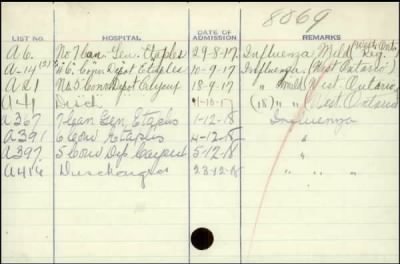 8069
LIST NO. HOSPITAL DATE OF ADMISSION REMARKS
West Ont
A6. No 7 Can. Gen. Etaples 29-8-17. Influenza Mild Reg.
A-14 6 Conv Depot Etaples 10-9-17. Influenza. (West Ontario)
A21 No 5. Conv Depot Cayeux 18-9-17 " Mild West. Ontario
A41 Disch -10-17 (18) " " West Ontario
A367 7 Can Gen Etaples 1-12-18 Influenza
A391 6 Conv Etaples 4-12-18 "
A397 5 Conv Dep Cayeux 5-12-18 "
A414 Discharged 23-12-18 " " "